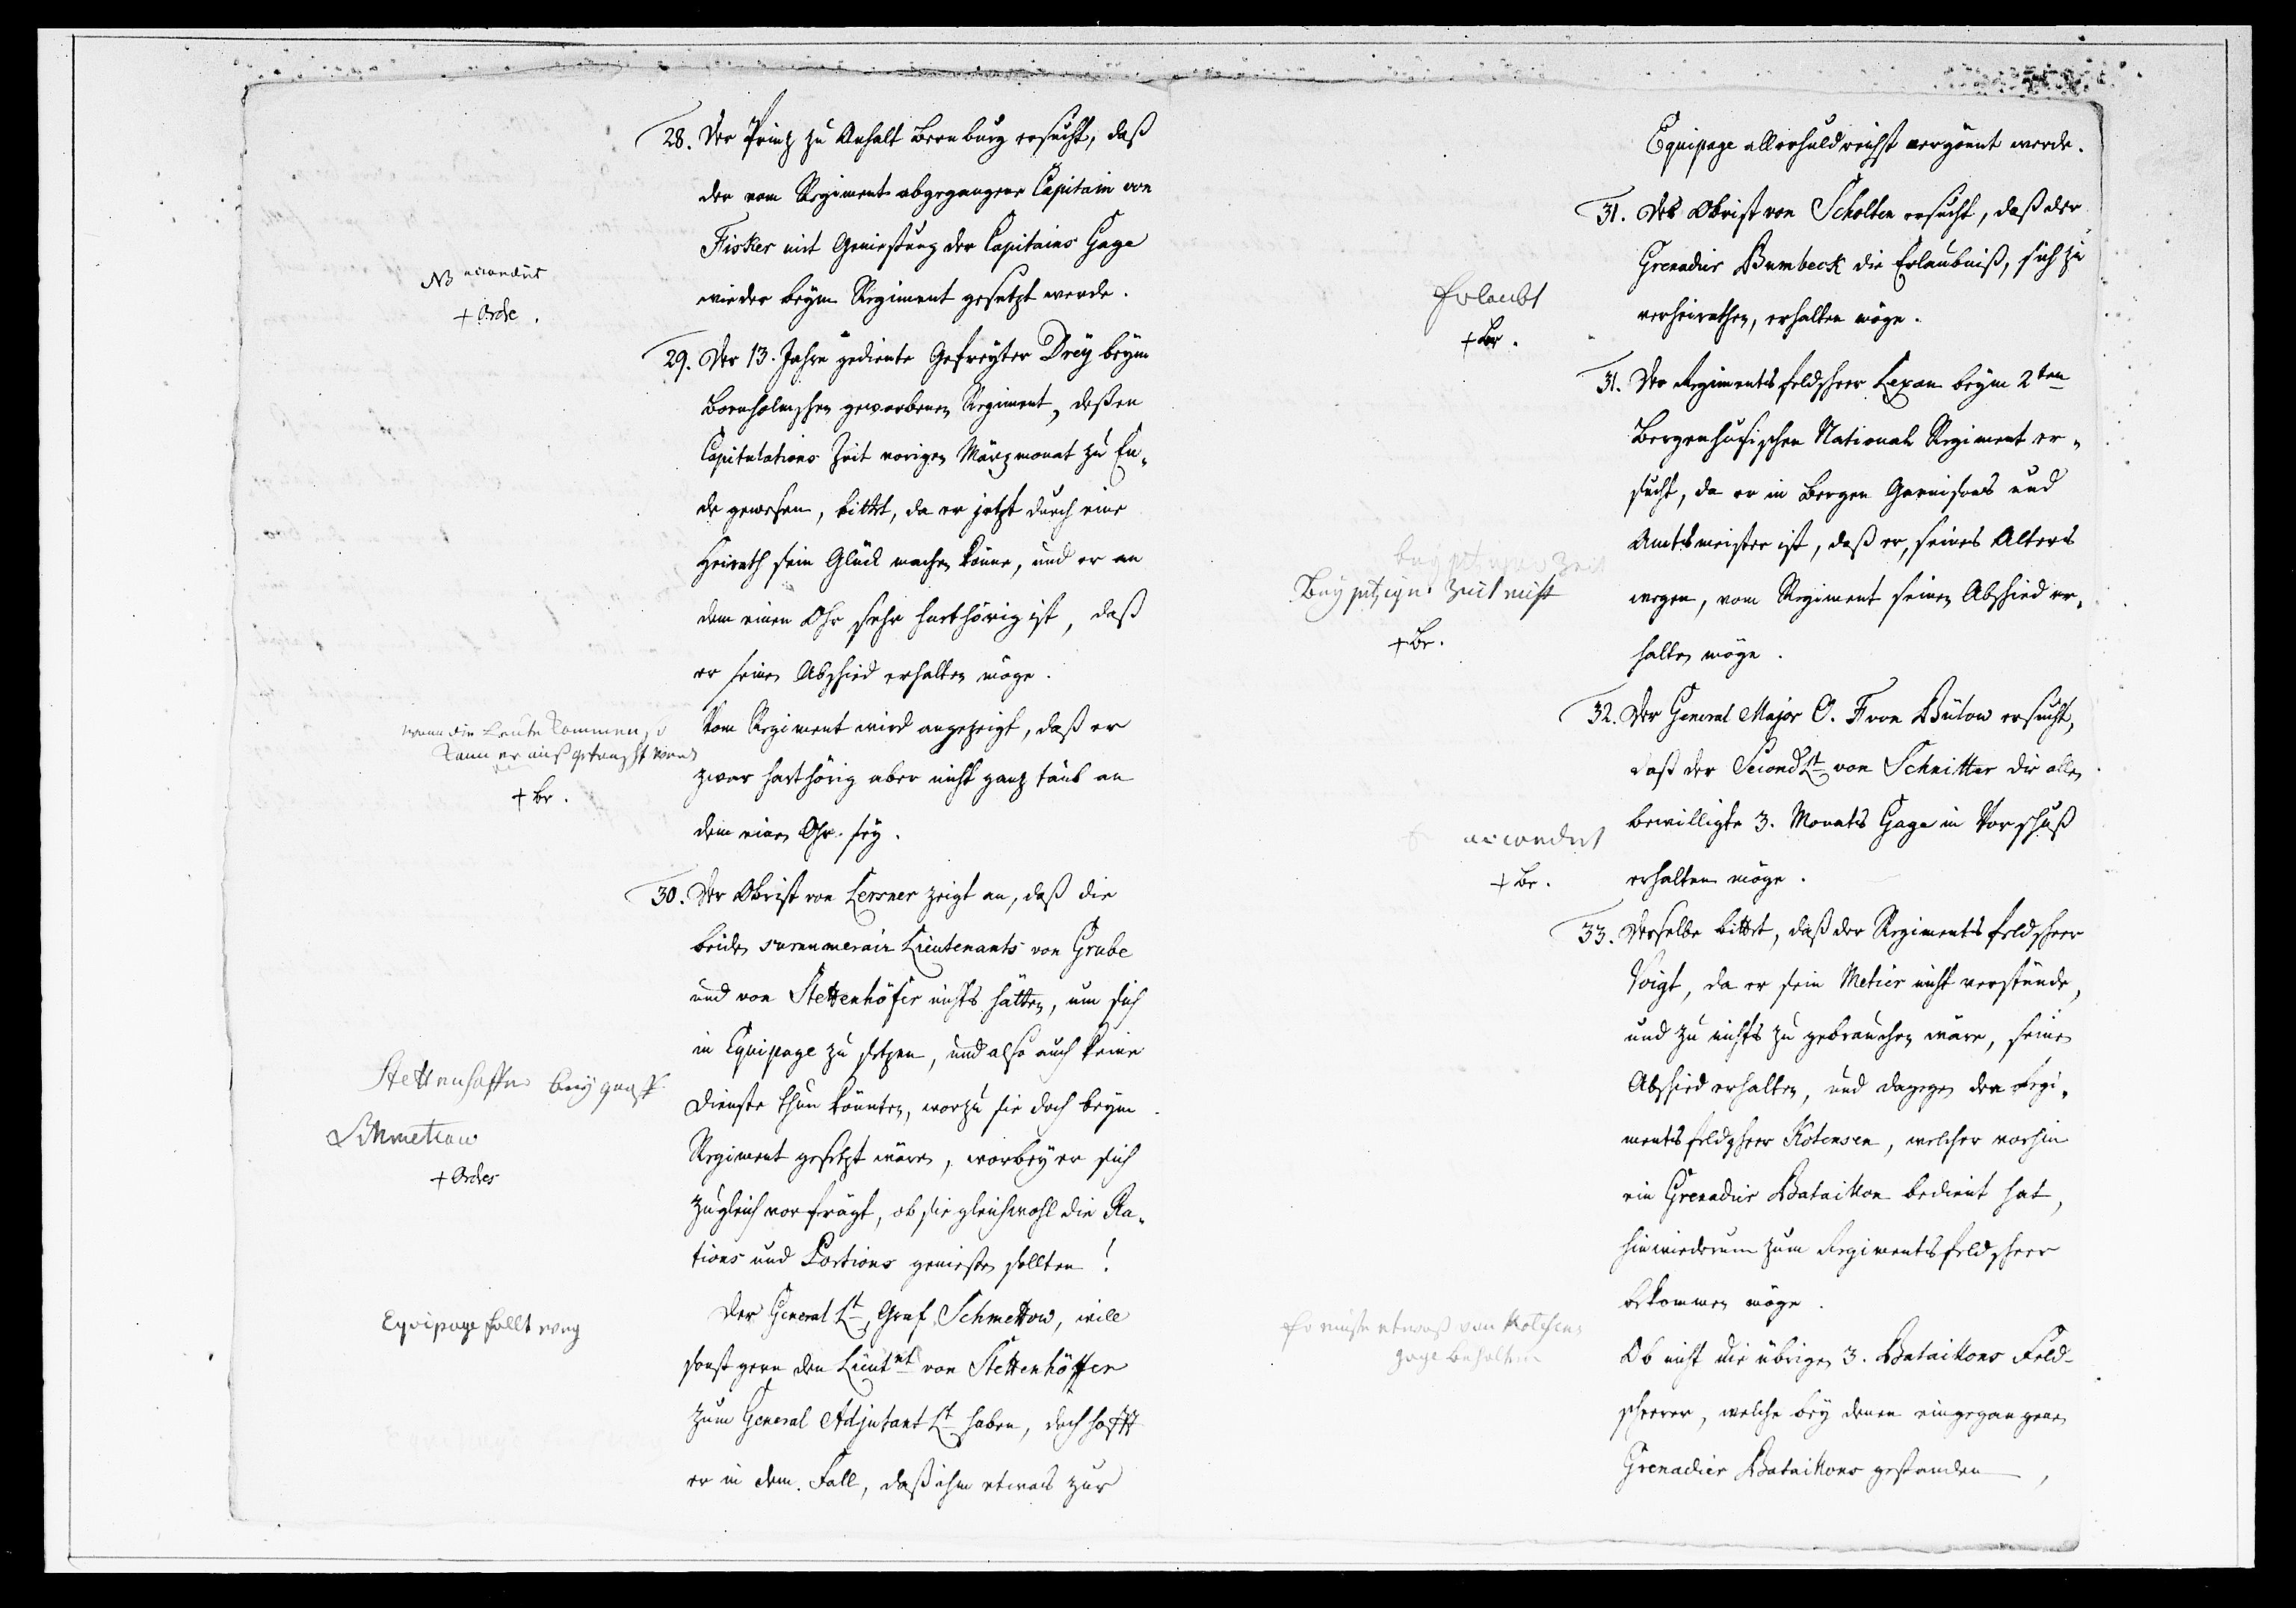 28. Der Prinz zu Anhalt Bernburg ersucht, daß
der vom Regiment abgegangene Capitain von
Fisker mit Genießung der Capitains Gage
wieder beym Regiment gesetzt werde.
NB accordirt
+ Ordre.
29. Der 13. Jahre gediente Gefreyter Drey beym
Bornholmschen geworbenen Regiment, deßen
Capitulations Zeit vorigen Märzmonat zu En„
de gewesen, bittet, da er jetzt durch eine
Heirath sein Glück machen könne, und er an
dem einen Ohr sehr harthörig ist, daß
er seinen Abschied erhalten möge.
Vom Regiment wird angezeigt, daß er
zwar harthörig aber nicht ganz taub an
dem einen Ohr sey.
wenn die Leute kommen, so
kann er
+ Br.
30. Der Obrist von Lersner zeigt an, daß die
beiden surnumerair Lieutenants von Grube
und von Stettenhöfer nichts hätten, um sich
in Equipage zu setzen, und also auch keine
Dienste thun könnten, worzu sie doch beym
Regiment gesetzt wären, worbey er sich
zugleich vorfrägt, ob sie gleichwohl die Ra„
tions und Portions genießen sollten!
Stettenhoffer bey
Schmettow
+ Ordres
Der General Lt Graf Schmettow, will
sonst gern den Lieutnt von Stettenhöffer
zum General Adjutant Lt haben, doch hofft
er in dem Fall, daß ihm etwas zur
Equipage fällt weg
Equipage allerhuldreichst vergönnt werde.
31. Der Obrist von Scholten ersucht, daß der
Grenadier Bumbeck die Erlaubniß, sich zu
verheirathen, erhalten möge.
Erlaubt
+ Br.
31. Der Regimentsfeldscheer Lexan beym 2ten
Bergenhusischen National Regiment er„
sucht, da er in Bergen Garnisons und
Amtsmeister ist, daß er, seines Alters
wegen, vom Regiment seinen Abschied er„
halten möge.
Bey jetziger Zeit nicht
+ Br.
32. Der General Major C. F von Bülow ersucht,
daß der Second Lt von Schnitter die allen
bewilligte 3. Monats Gage in Vorschuß
erhalten möge.
accordirt
+ Br.
33. Derselbe bittet, daß der Regimentsfeldscheer
Voigt, da er sein Metier nicht verstünde,
und zu nichts zu gebrauchen wäre, seinen
Abschied erhalten, und dagegen der Regi„
mentsfeldscheer Kotensen, welcher vorhin
ein Grenadier Bataillon bedient hat,
hinwiederum zum Regimentsfeldscheer
bekommen möge.
Er müste etwas von
gage behalten
Ob nicht die übrigen 3. Bataillons Feld-
scheerer, welche bey denen eingegangenen
Grenadier Bataillons gestanden,